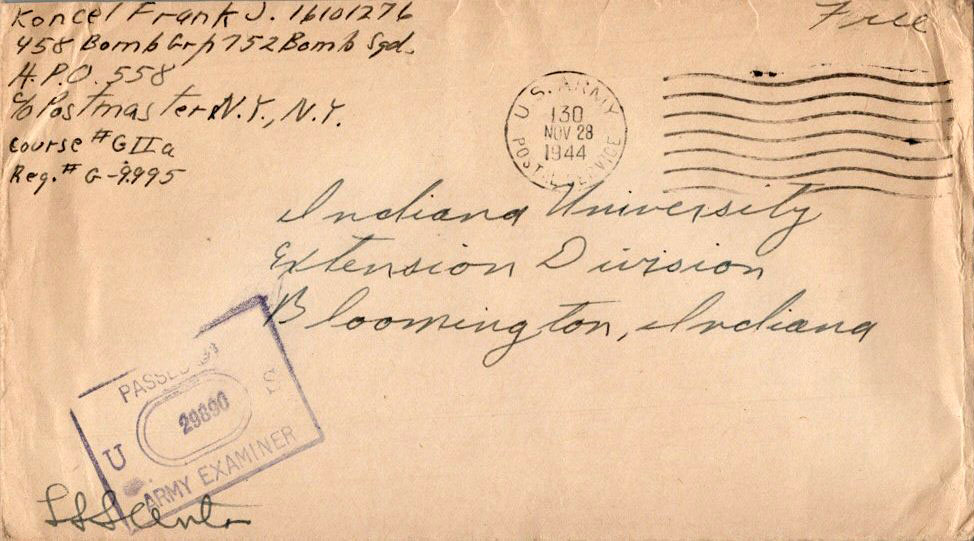 Koncel Frank J. 16101276
Free
458 Bomb Grp 752 Bomb Sqd.
A.P.O. 558
c/o Postmaster N.Y., N.Y.
Course # G II a
Reg. # G-9995
U.S. ARMY
130
NOV 28
1944
POSTAL SERVICE
Indiana University
Extension Division
Bloomington, Indiana
PASSED BY
U S
29890
ARMY EXAMINER